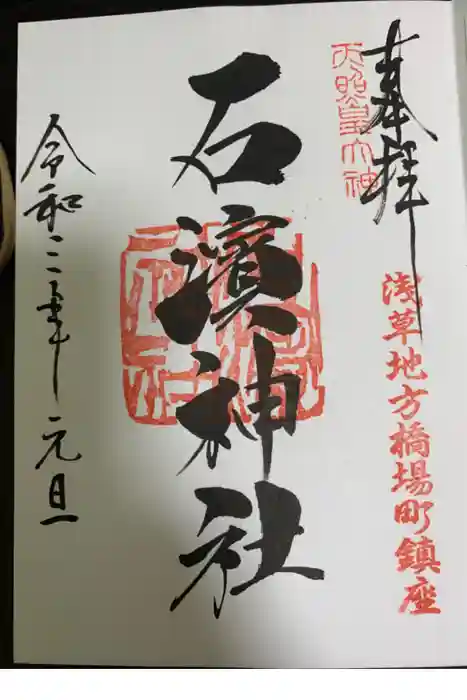 奉拝
天照皇大神
浅草地方橋場町鎮座
石濱神社
令和二年元旦